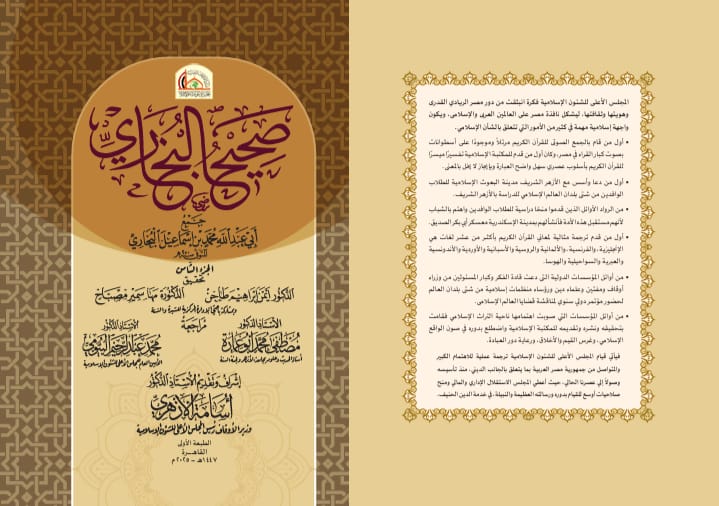 صحيح البخاري
جمع
أبي عبد الله محمد بن إسماعيل البخاري
الجزء الثامن
تحقيق
الدكتور أيمن إبراهيم طاحين
الدكتورة مها سمير مصباح
مراجعة
الأستاذ الدكتور
مصطفى محمد أبو عمارة
الأستاذ الدكتور
محمد عبد الرحيم البيومي
الأمين العام للمجلس الأعلى للشئون الإسلامية
إشراف وتقديم الأستاذ الدكتور
أسامة الأزهري
وزير الأوقاف رئيس المجلس الأعلى للشئون الإسلامية
الطبعة الأولى
القاهرة
١٤٤٧هـ - ٢٠٢٥م
المجلس الأعلى للشئون الإسلامية فكرة انبثقت من دور مصر الريادي القدرى
وهويتها وثقافتها، ليشكل نافذة مصر على العالمين العربى والإسلامى، ويكون
واجهة إسلامية مهمة في كثير من الأمور التي تتعلق بالشأن الإسلامي.
• أول من قام بالجمع الصوتي للقرآن الكريم مرتلاً وموجودًا على أسطوانات
بصوت كبار القراء في مصر، وكان أول من قدم للمكتبة الإسلامية تفسيرًا ميسرًا
للقرآن الكريم بأسلوب عصري سهل واضح العبارة وبإيجاز لا يخل بالمعنى.
• أول من دعا وأسس مع الأزهر الشريف مدينة البعوث الإسلامية للطلاب
الوافدين من شتى بلدان العالم الإسلامي للدراسة بالأزهر الشريف.
• من الرواد الأوائل الذين قدموا منحًا دراسية للطلاب الوافدين واهتم بالشباب
لأنهم مستقبل هذه الأمة فأنشأ لهم بمدينة الإسكندرية معسكر أبي بكر الصديق.
• أول من قدم ترجمة مثالية لمعاني القرآن الكريم بأكثر من عشر لغات هي
الإنجليزية، والفرنسية، والألمانية والروسية والأسبانية والأوردية والأندونسية
والعبرية والسواحيلية والهوسا.
• من أوائل المؤسسات الدولية التى دعت قادة الفكر وكبار المسئولين من وزراء
أوقاف ومفتين وعلماء دين ورؤساء منظمات إسلامية من شتى بلدان العالم
لحضور مؤتمر دولي سنوي لمناقشة قضايا العالم الإسلامى.
• من أوائل المؤسسات التي صوبت اهتمامها ناحية التراث الإسلامي فقامت
بتحقيقه ونشره وتقديمه للمكتبة الإسلامية واضطلع بدوره في صون الواقع
الإسلامي، وغرس القيم والأخلاق، ورعاية دور العبادة.
فيأتي قيام المجلس الأعلى للشئون الإسلامية ترجمة عملية للاهتمام الكبير
والتواصل من جمهورية مصر العربية بما يتعلق بالجانب الديني، منذ تأسيسه
وصولاً إلى عصرنا الحالي، حيث أعطي المجلس الاستقلال الإداري والمالي ومنح
صلاحيات أوسع للقيام بدوره ورسالته العظيمة والنبيلة، في خدمة الدين الحنيف.